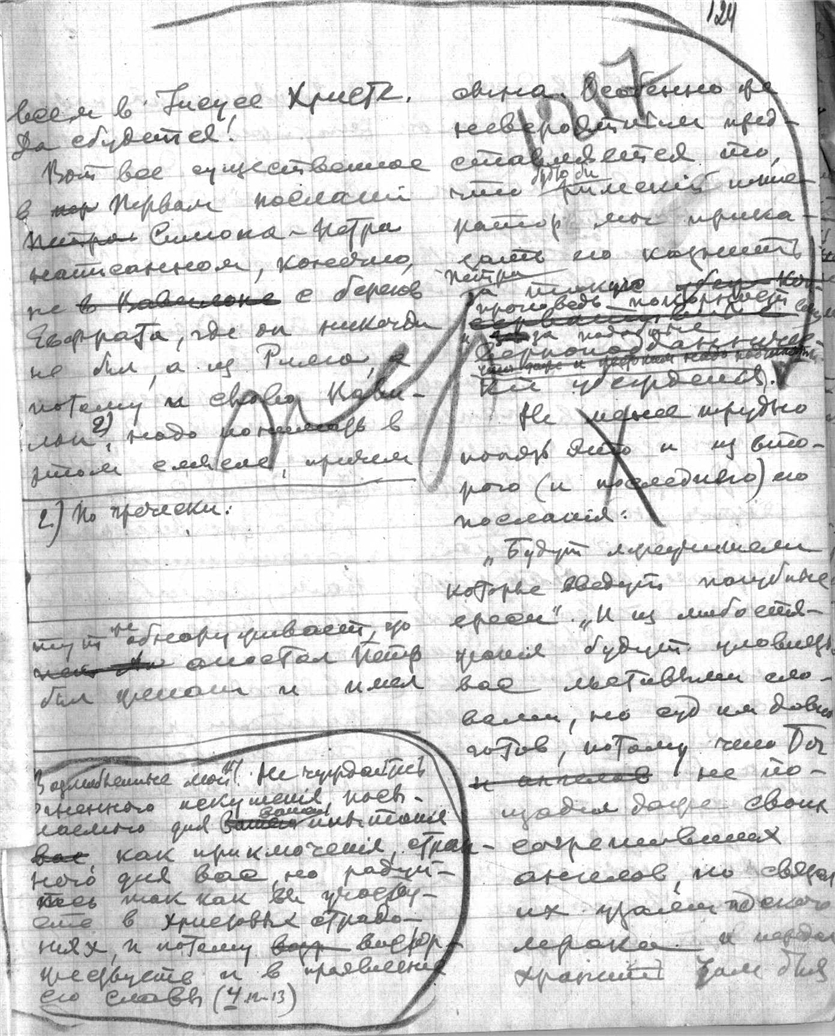 124
всем в Iисусе Христе.
Да сбудется!
Вот все существенное
в пер Первом посланiи
Петра Симона-Петра
написанном, конечно,
не в Вавилоне с берегов
Евфрата, где он никогда
не был, а из Рима, а
потому и слово Вави-
лон 2), надо понимать в
этом смысле, причем
2.) По гречески:
тут не обнаруживает, что
апостол Петр
был женат и имел
Возлюбленные мои! Не чуждайтесь
огненного искушенiя посы-
лаемого для вашего испытанiя
вас, как приключенiя, стран-
ного для вас, но радуй-
тесь так как вы участву-
ете в христовых страда-
нiях, и потому востор-
жествуете и в проявленiе
его славы (4, 12-13)
сына. Особенно же
невероятным пред-
ставляется то,
что будто бы Римскiй импе-
ратор мог прика-
зать его казнить
Петра
за такую
проповедь покорности
за подобные
убежденiя.
Не менее трудно
понять это и из вто-
рого (и последняго) его
посланiя:
„Будут лжеучители
которые введут пагубные
ереси“. „И из любостя-
жанiя будут уловлять
вас льстивыми сло-
вами, но суд им давно
готов, потому что Бог
и ангелов не по-
щадил даже своих
согрешивших
ангелов, но связал
их узами адского
мрака и
хранит там для